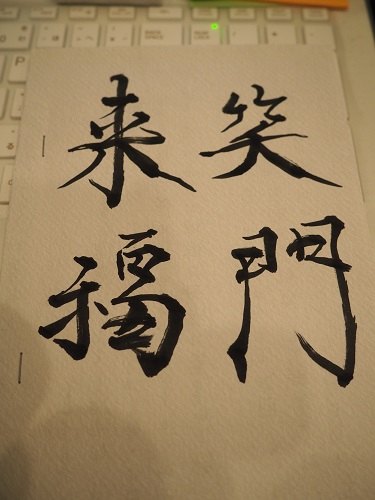 笑門
来福